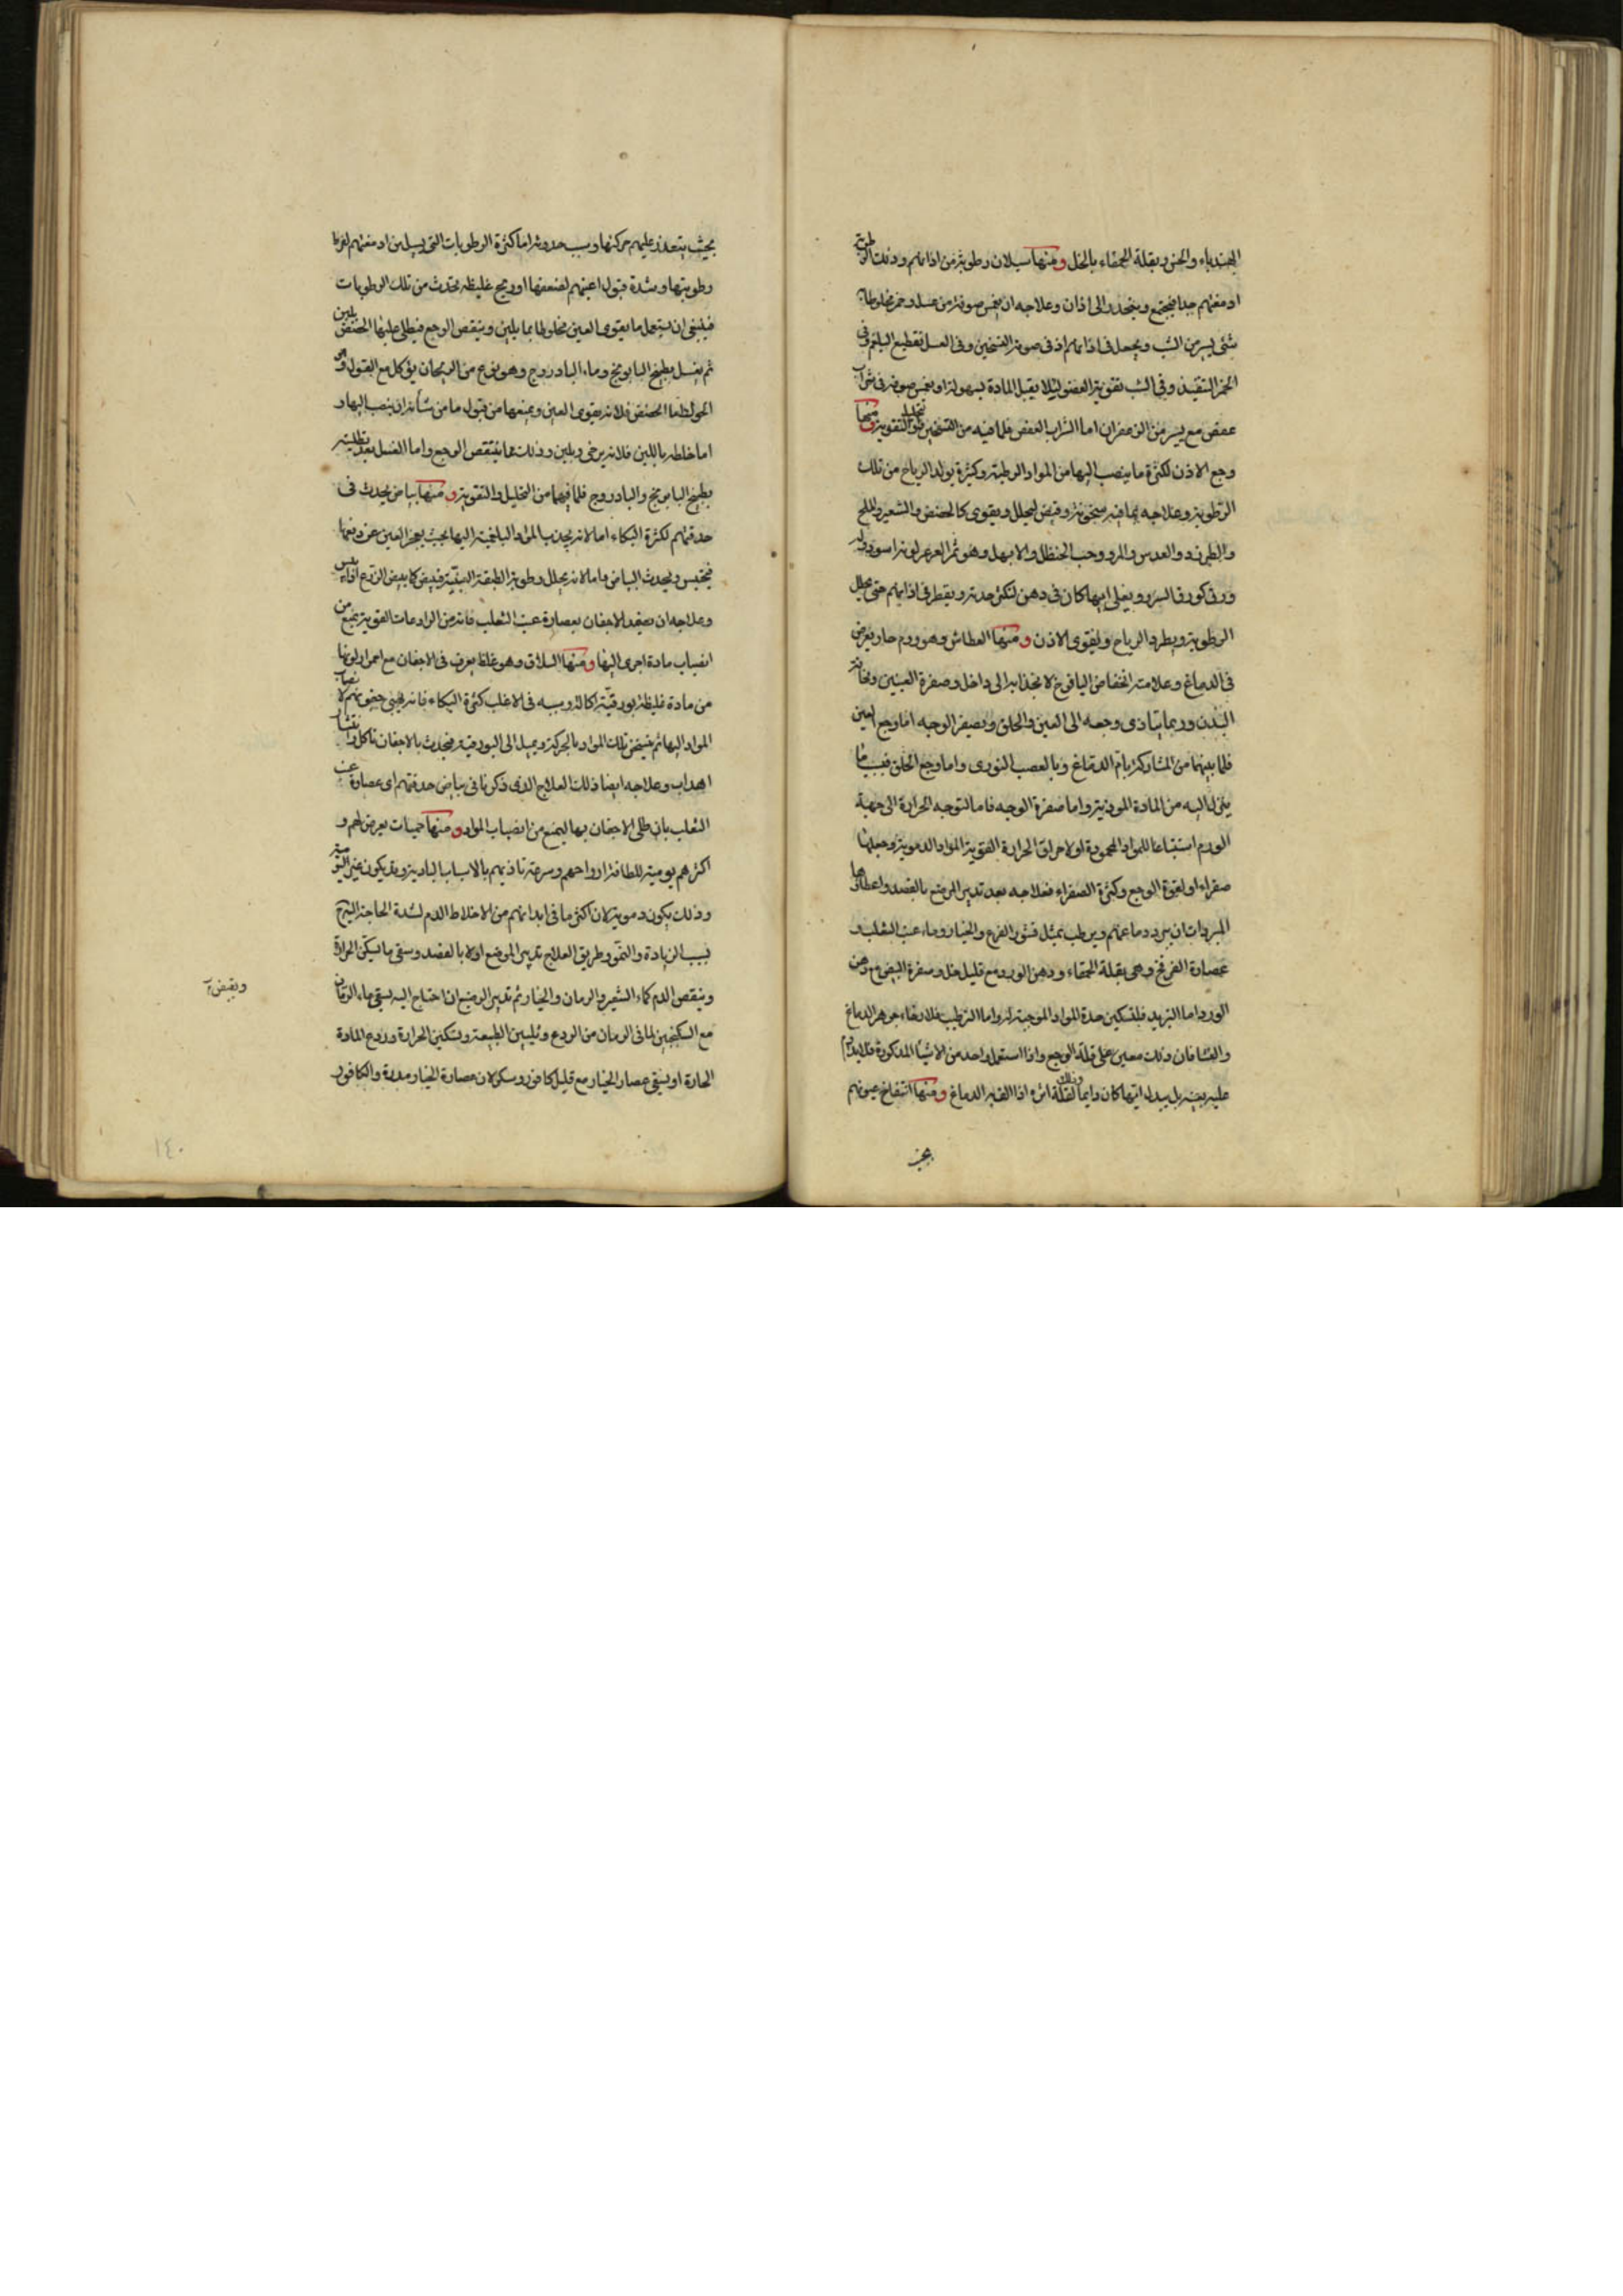 الهندباء والخس وبقلة الحمقاء بالخل ومنها سيلان رطوبة من اذانهم وذلك لان رطوبة
ادمغتهم جدا فيجتمع وينحدر الى اذان وعلاجه ان يغمس صوفة من عسل وخمر مخلوطا به
شئ يسير من الشب ويجعل في اذانهم اذ في صوفة التسخين وفي العسل تقطيع البلغم وفي
الخمر التنفيذ وفي الشب تقوية العضو لئلا يقبل المادة بسهولة او يغمس صوفة في شراب
عفص مع يسير من الزعفران اما الشراب العفص فلما فيه من التسخين والتحليل والتقوية ومنها
وجع الاذن لكثرة ما ينصب اليها من المواد الرطبة وكثرة تولد الرياح من تلك
الرطوبة وعلاجه بما فيه سخونة وقبض ليحلل ويقوى كالحضض والشعير والملح
والطبرزد والعدس والمر وحب الحنظل والابهل وهو ثمر العرعر لونه اسود
ورق كورق السرو ويغلى ايها كان في دهن لتكسر حدته ويقطر في اذانهم حتى يحلل
الرطوبة ويطرد الرياح ويقوى الاذن ومنها العطاش وهو ورم حار يعرض
في الدماغ وعلامته انخفاض اليافوخ لانجذابه الى داخل وصفرة العينين ونحافة
البدن وربما يتأذى وجعه الى العين والحلق ويصفر الوجه اما وجع العين
فلما بينهما من المشاركة بأم الدماغ وبالعصب النورى واما وجع الحلق فبسبب ما
ينزل اليه من المادة الموذية واما صفرة الوجه فاما لتوجه الحرارة الى جهة
الورم استتباعا للمواد المحمودة او لاحراق الحرارة القوية المواد الدموية وجعلها
صفراء او لقوة الوجع وكثرة الصفراء فعلاجه بعد تدبير المرضع بالفصد واعطائها
المبردات ان يبرد دماغهم ويرطب بمثل قشور القرع والخيار وماء عنب الثعلب و
عصارة الفرفخ وهى بقلة الحمقاء ودهن الورد مع قليل خل وصفرة البيض مع دهن
الورد اما التبريد فلتسكين حدة المواد الموجبة له واما الترطيب فلارخاء جوهر الدماغ
والغشا فان ذلك معين على قلة الوجع واذا استعمل احد من الاشياء المذكورة فلا يدام
عليه بعينه بل يبدل ايها كان دايما وذلك لقلة اثره اذا الفه الدماغ ومنها انتفاخ عيونهم
بحيث
بحيث يتعذر عليهم حركتها وسبب حدوثه اما كثرة الرطوبات التي يسيل من ادمغتهم لفرط
رطوبتها وشدة قبول اعينهم لضعفها او ريح غليظة تحدث من تلك الرطوبات
فينبغى ان يستعمل ما يقوى العين مخلوطا بما يلين وينقص الوجع فيطلى عليها الحضض بلبن
ثم يغسل بطبيخ البابونج وماء الباذروج وهو نوع من الريحان يؤكل مع البقول
اما الحضض فلانه يقوى العين ويمنعها من قبول ما من شأنه ان ينصب اليها و
اما خلطه باللبن فلانه يرخى ويلين وذلك مما ينقص الوجع واما الغسل بعد تطليته
بطبيخ البابونج والباذروج فلما فيهما من التحليل والتقوية ومنها بياض يحدث في
حدقتهم لكثرة البكاء اما لانه يجذب المواد البلغمية اليها بحيث يعجز العين عن دفعها
فيحتبس ويحدث البياض واما لانه يحلل رطوبة الطبقة القرنية فيبيض كما يبيض الزرع اذا يبس
وعلاجه ان يضمد الاجفان بعصارة عنب الثعلب فانه من الرادعات القوية يمنع من
انصباب مادة اخرى اليها ومنها السلاق وهو غلظ يعرض في الاجفان مع احمرار لونها
من مادة غليظة بورقية اكالة وسببه في الاغلب كثرة البكاء فانه جفونهم لانصباب
المواد اليها ثم يتسخن تلك المواد بالحركة ويميل الى البورقية فيحدث بالاجفان تاكل وانتشار
اهداب وعلاجه ايضا ذلك العلاج الذى ذكرنا في بياض حدقتهم اى عصارة عنب
الثعلب بان طلى الاجفان بها ليمنع من انصباب المواد ومنها حميات يعرض لهم و
اكثرهم يومية للطافة ارواحهم وسرعة تاذيهم بالاسباب البادية وقد يكون غير اليومية
وذلك يكون دموية لان اكثر ما في ابدانهم من الاخلاط الدم لشدة الحاجة اليه
بسبب الزيادة والنمو وطريق العلاج تدبير المرضع اولا بالفصد وسقى ما يسكن الحرارة
وينقص الدم كماء الشعير والرمان والخيار ثم تدبير الرضيع ان احتاج اليه يسقى ماء الرمان
ويقبض
مع السكنجبين لما في الرمان من الردع وتليين الطبيعة وتسكين الحرارة وردع المادة
الحارة او يسقى عصار الخيار مع قليل كافور وسكر لان عصارة الخيار مدرة والكافور
١٤٠